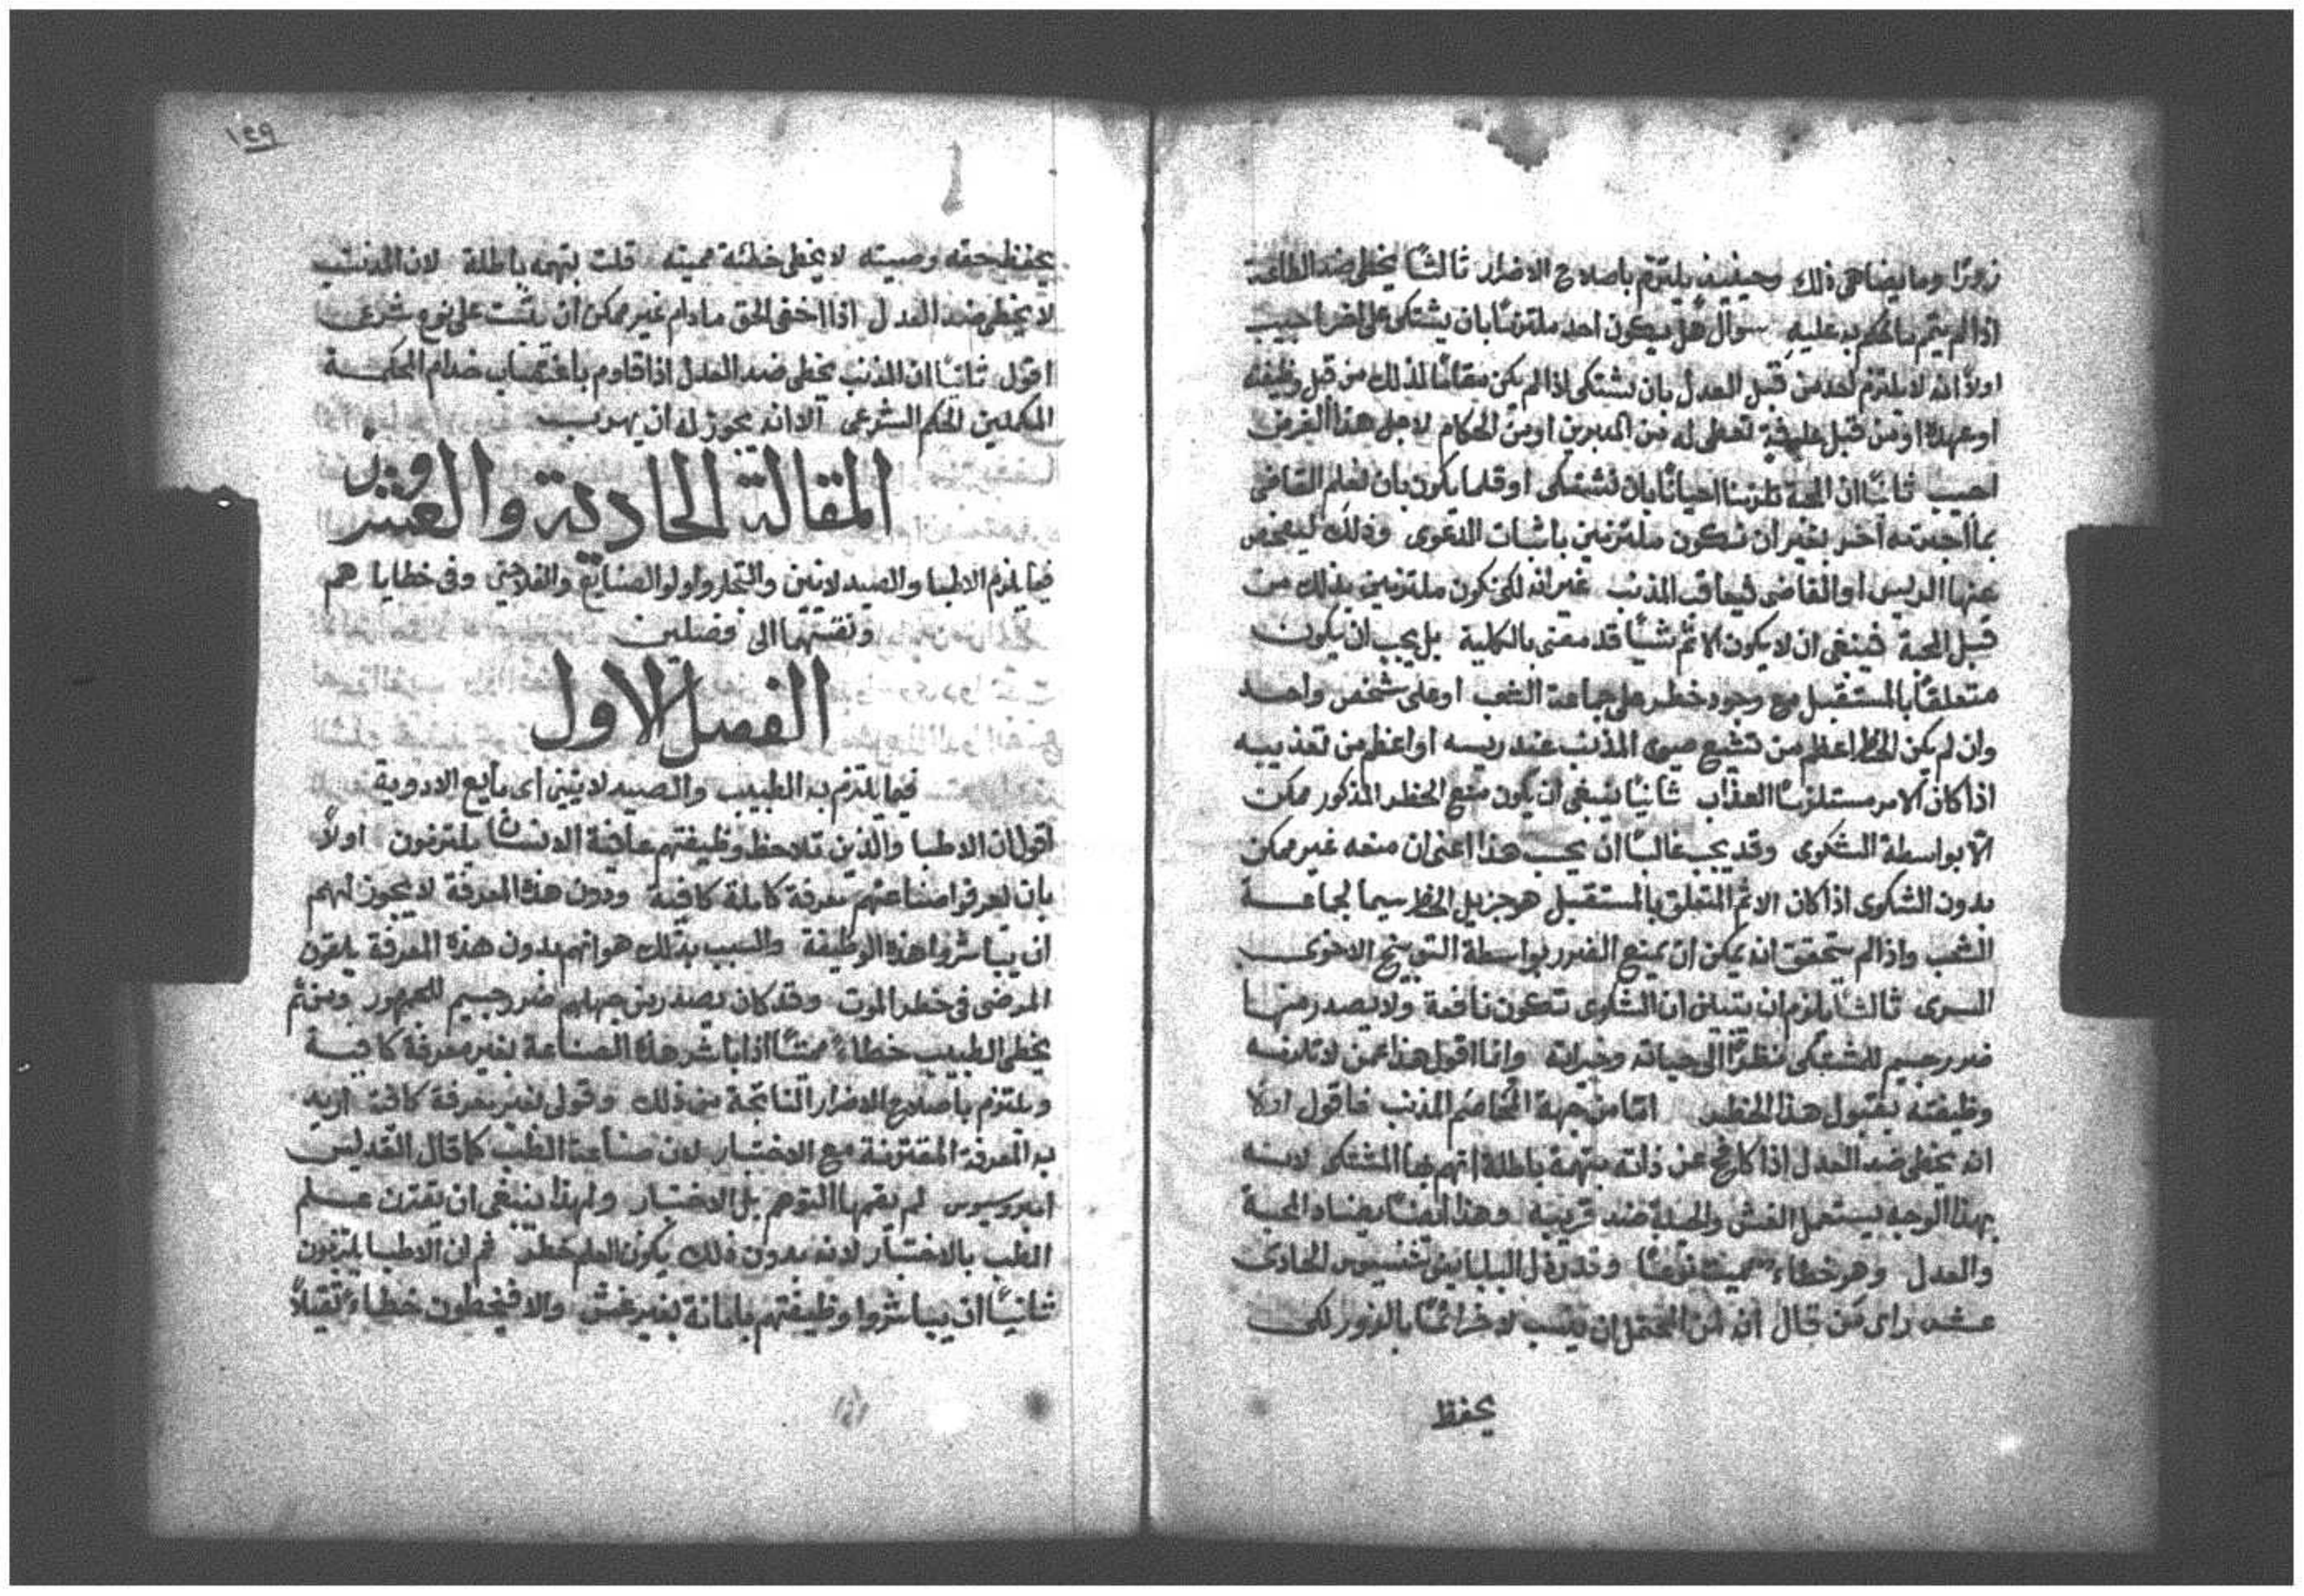 زورًا وما يضاهى ذلك وحينيذ يلتزم باصلاح الاضرار ثالثًا يخطى ضد الطاعة
اذا لم يتم ما حكم به عليه سوال هل يكون احد ملتزمًا بان يشتكى على اخر اجيب
اولاً انه لا يلتزم احد من قبل العدل بان يشتكى اذا لم يكن مقامًا لذلك من قبل وظيفته
او عهده او من قبل علوفة تعطى له من المدبرين او من الحكام لاجل هذا الغرض
اجيب ثانيًا ان المحبة تلزمنا احيانًا بان نشتكى او قلما يكون بان نعلم القاضى
بما اجرمه آخر بغير ان نكون ملتزمين باثبات الدعوى وذلك ليفحص
عنها الريس او القاضى فيعاقب المذنب غير انه لكى نكون ملتزمين بذلك من
قبل المحبة فينبغى ان لا يكون الاثم شيًا قد مضى بالكلية بل يجب ان يكون
متعلقًا بالمستقبل مع وجود خطر على جماعة الشعب او على شخص واحد
وان لم يكن الخطر اعظم من تشيع صيت المذنب عند ريسه او اعظم من تعذيبه
اذا كان الامر مستلزمًا العذاب ثانيًا ينبغى ان يكون منع الخطر المذكور ممكن
الّا بواسطة الشكوى وقد يجب غالبًا ان يحسب هذا اعنى ان منعه غير ممكن
بدون الشكوى اذا كان الاثم المتعلق بالمستقبل هو جزيل الخطر سيما لجماعة
الشعب واذا لم يتحقق انه يمكن ان يمنع الضرر بواسطة التوبيخ الاخوى
السرى ثالثًا يلزم ان يتبين ان الشكوى تكون نافعة ولا يصدر منها
ضرر جسيم للمشتكى نظرًا الى حياته وخيراته وانا اقول هذا عمن لا تلزمه
وظيفته بقبول هذا الخطر امّا من جهة المخاصم المذنب فاقول اولًا
انه يخطى ضد العدل اذا كافح عن ذاته بتهمة باطلة اتهم بها المشتكى لانه
بهذا الوجه يستعمل الغش والحيلة ضد قريبه وهذا ايضًا يضاد المحبة
والعدل وهو خطاء مميت نوعًا وقد رذل البابا اينوشنسيوس الحادى
عشر راى من قال انه من المحتمل ان من ينسب لاخر اثمًا بالزور لكى
يحفظ
١٤٩
يحفظ حقه وصيته لا يخطى خطئة مميته قلت بتهمه باطلة لان المذنب
لا يخطى ضد العدل اذا اخفى الحق ما دام غير ممكن ان يثبت على نوع شرعى
اقول ثانيًا ان المذنب يخطى ضد العدل اذا قاوم باغتصاب خدام الحكمة
المكملين الحكم الشرعى الا انه يجوز له ان يهرب
المقالة الحادية والعشرون
فيما يلزم الاطبا والصيدلانيين والتجار واولو الصنايع والفلاحين وفى خطاياهم
ونقسمها الى فصلين
الفصل الاول
فيما يلتزم به الطبيب والصيدلانيين اى بايع الادوية
اقول ان الاطبا والذين تلاحظ وظيفتهم عافية الانسان يلتزمون اولاً
بان يعرفوا صناعتهم معرفة كاملة كافية ودون هذه المعرفة لا يجوز لهم
ان يباشروا هذه الوظيفة والسبب بذلك هو انهم بدون هذه المعرفة يلقون
المرضى فى خطر الموت وقد كان يصدر من جهلهم ضرر جسيم للجمهور ومن ثم
يخطى الطبيب خطاءً مميتًا اذا باشر هذه الصناعة بغير معرفة كافية
ويلتزم باصلاح الاضرار الناتجة من ذلك وقولى بغير معرفة كافية اريد
به المعرفة المقترنة مع الاختبار لان صناعة الطب كما قال القديس
امبروسيوس لم يقمها التوهم بل الاختبار ولهذا ينبغى ان يقترن علم
الطب بالاختبار لانه بدون ذلك يكون العلم خطر ثم ان الاطبا يلتزمون
ثانيًا ان يباشروا وظيفتهم بامانة بغير غش والا فيخطون خطاءً ثقيلاً